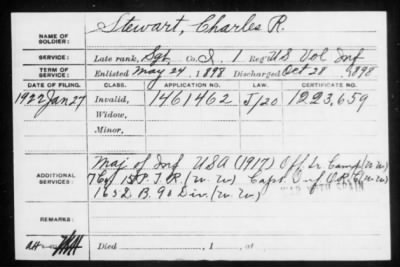 NAME OF SOLDIER: Stewart, Charles R.
SERVICE: Late rank, Sgt Co. I, 1 Reg't US Vol Inf
TERM OF SERVICE: Enlisted May 24, 1898 Discharged Oct 28, 1898
DATE OF FILING. CLASS. APPLICATION NO. LAW. CERTIFICATE NO.
1922 Jan 27 Invalid, 1461462 J/20 1223,659
Widow,
Minor,
ADDITIONAL SERVICES: Maj of Inf USA (1917) Off Tr Camp (W.W)
(W.W) Capt (W.W)
1632 B. 90 Div. (W.W)
WAR WITH SPAIN
REMARKS:
Died , 1 , at